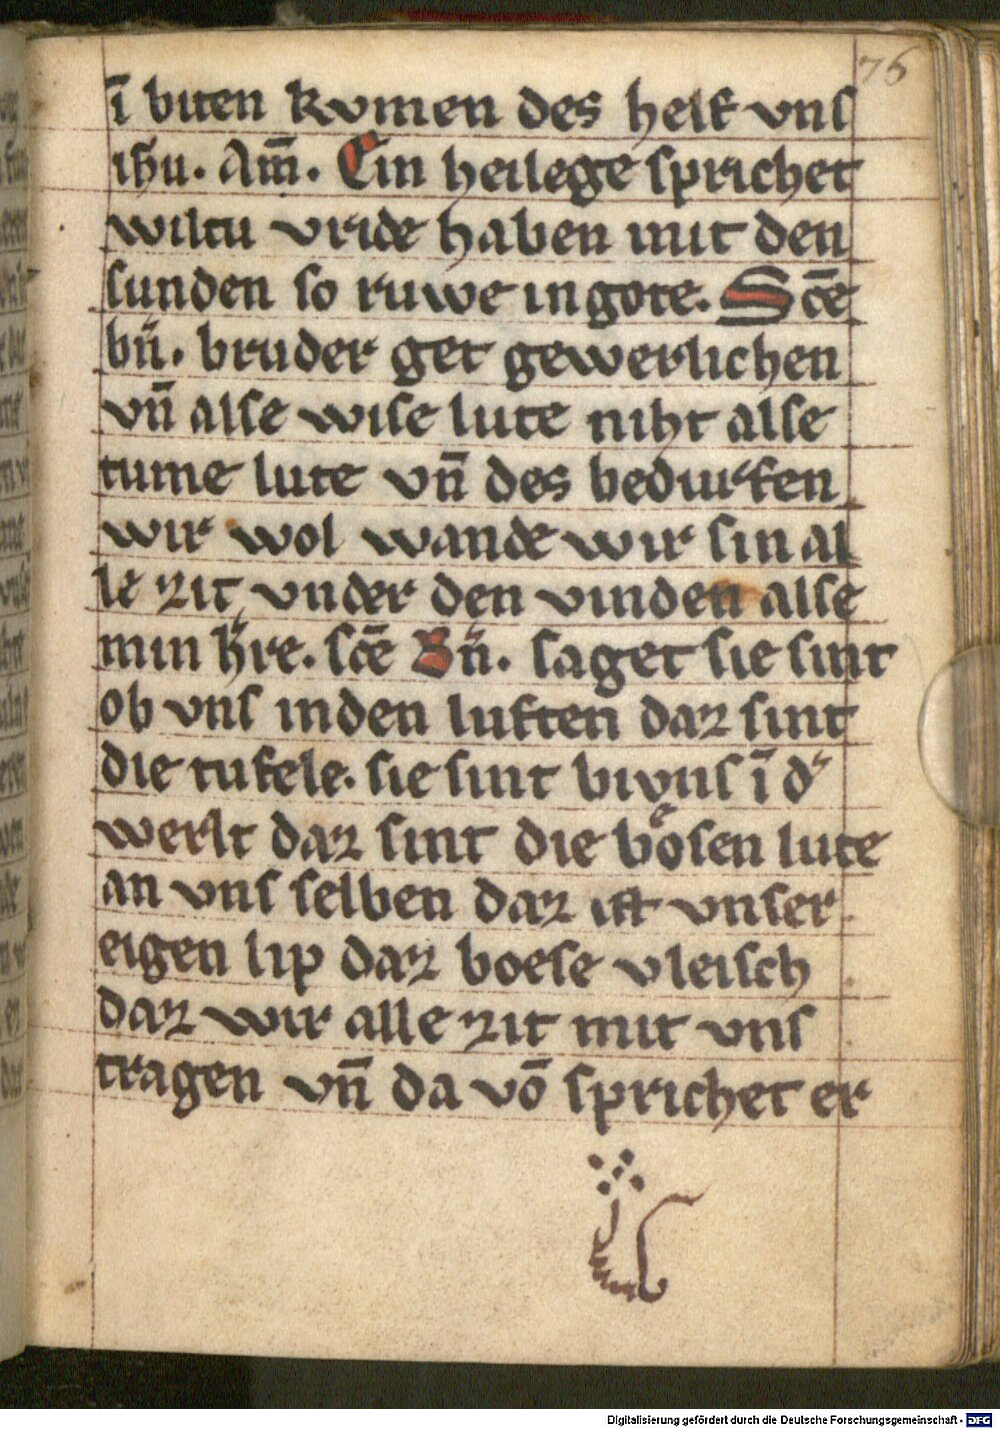 76
ī biten komen des helf vns
ihu. Am̄. Ein heilege sprichet
wiltu vride haben mit den
sunden so ruwe in gote. Sc̄e
bn̄. bruder get gewerlichen
vn̄ alse wise lute niht alse
tume lute vn̄ des bedurfen
wir wol wande wir sin al
le zit vnder den vinden alse
min h̄re. sc̄e Bn̄. saget sie sint
ob vns in den luften daz sint
die tufele. sie sint bi vns ī d'
werlt daz sint die boͤsen lute
an vns selben daz ist vnser
eigen lip daz boese vleisch
daz wir alle zit mit vns
tragen vn̄ da vō sprichet er
Digitalisierung gefördert durch die Deutsche Forschungsgemeinschaft - DFG